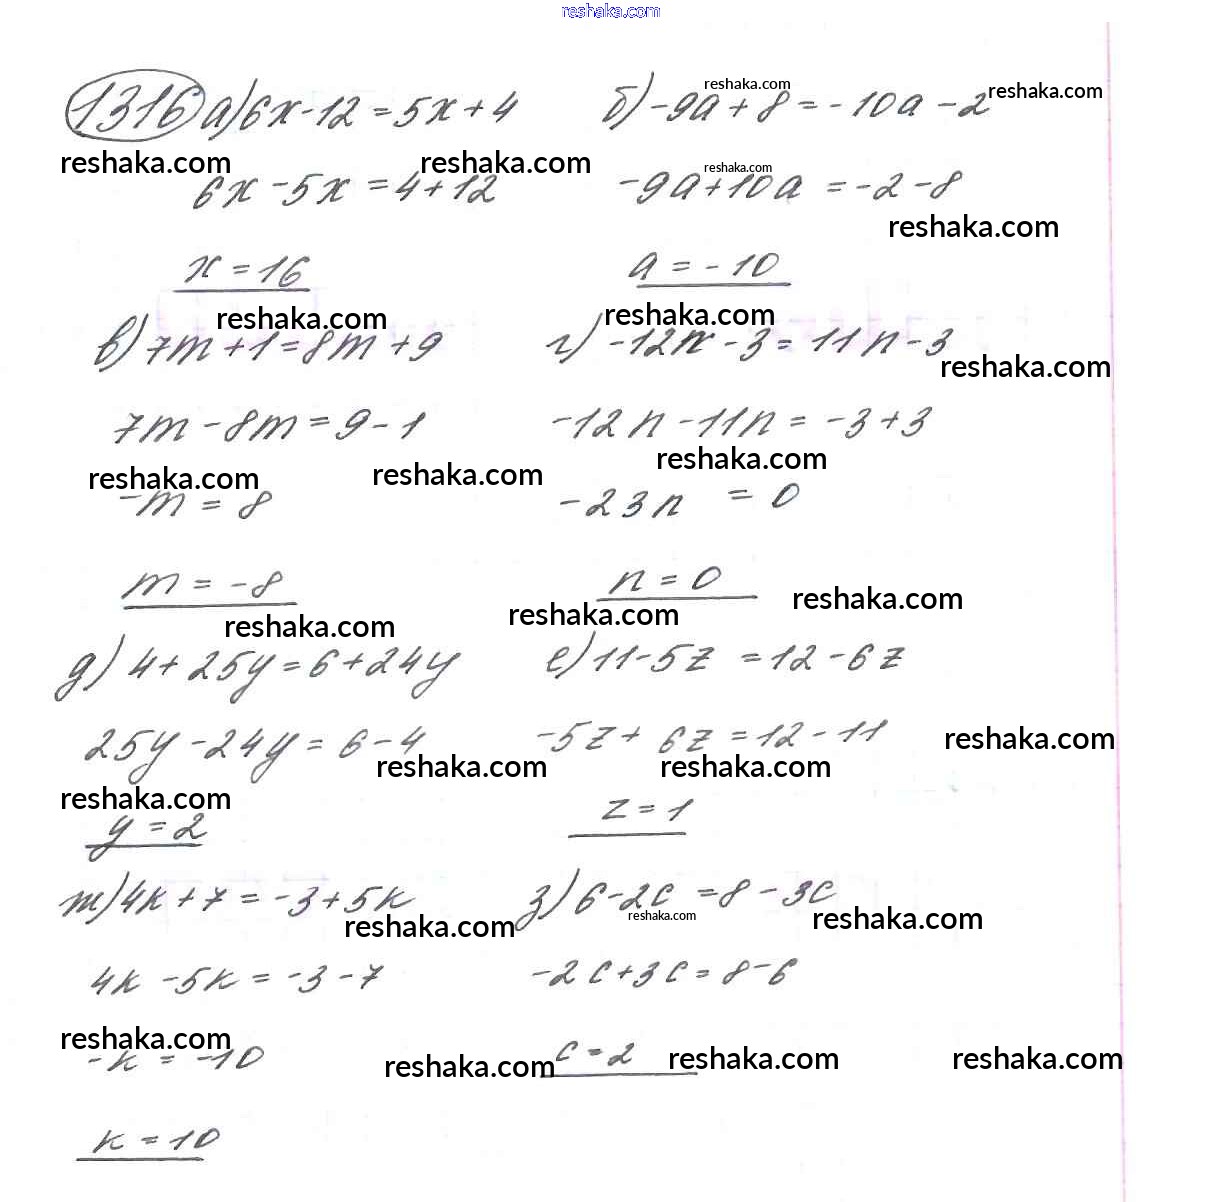 reshaka.com
1316 а) 6x - 12 = 5x + 4
б) -9a + 8 = -10a - 2
reshaka.com
reshaka.com
reshaka.com
reshaka.com
reshaka.com
6x - 5x = 4 + 12
-9a + 10a = -2 - 8
reshaka.com
x = 16
a = -10
reshaka.com
reshaka.com
в) 7m + 1 = 8m + 9
г) -12n - 3 = 11n - 3
reshaka.com
7m - 8m = 9 - 1
-12n - 11n = -3 + 3
reshaka.com
reshaka.com
reshaka.com
-m = 8
-23n = 0
m = -8
n = 0
reshaka.com
reshaka.com
reshaka.com
д) 4 + 25y = 6 + 24y
е) 11 - 5z = 12 - 6z
25y - 24y = 6 - 4
-5z + 6z = 12 - 11
reshaka.com
reshaka.com
reshaka.com
reshaka.com
y = 2
z = 1
ж) 4k + 7 = -3 + 5k
з) 6 - 2c = 8 - 3c
reshaka.com
reshaka.com
reshaka.com
4k - 5k = -3 - 7
-2c + 3c = 8 - 6
reshaka.com
-k = -10
c = 2
reshaka.com
reshaka.com
reshaka.com
k = 10